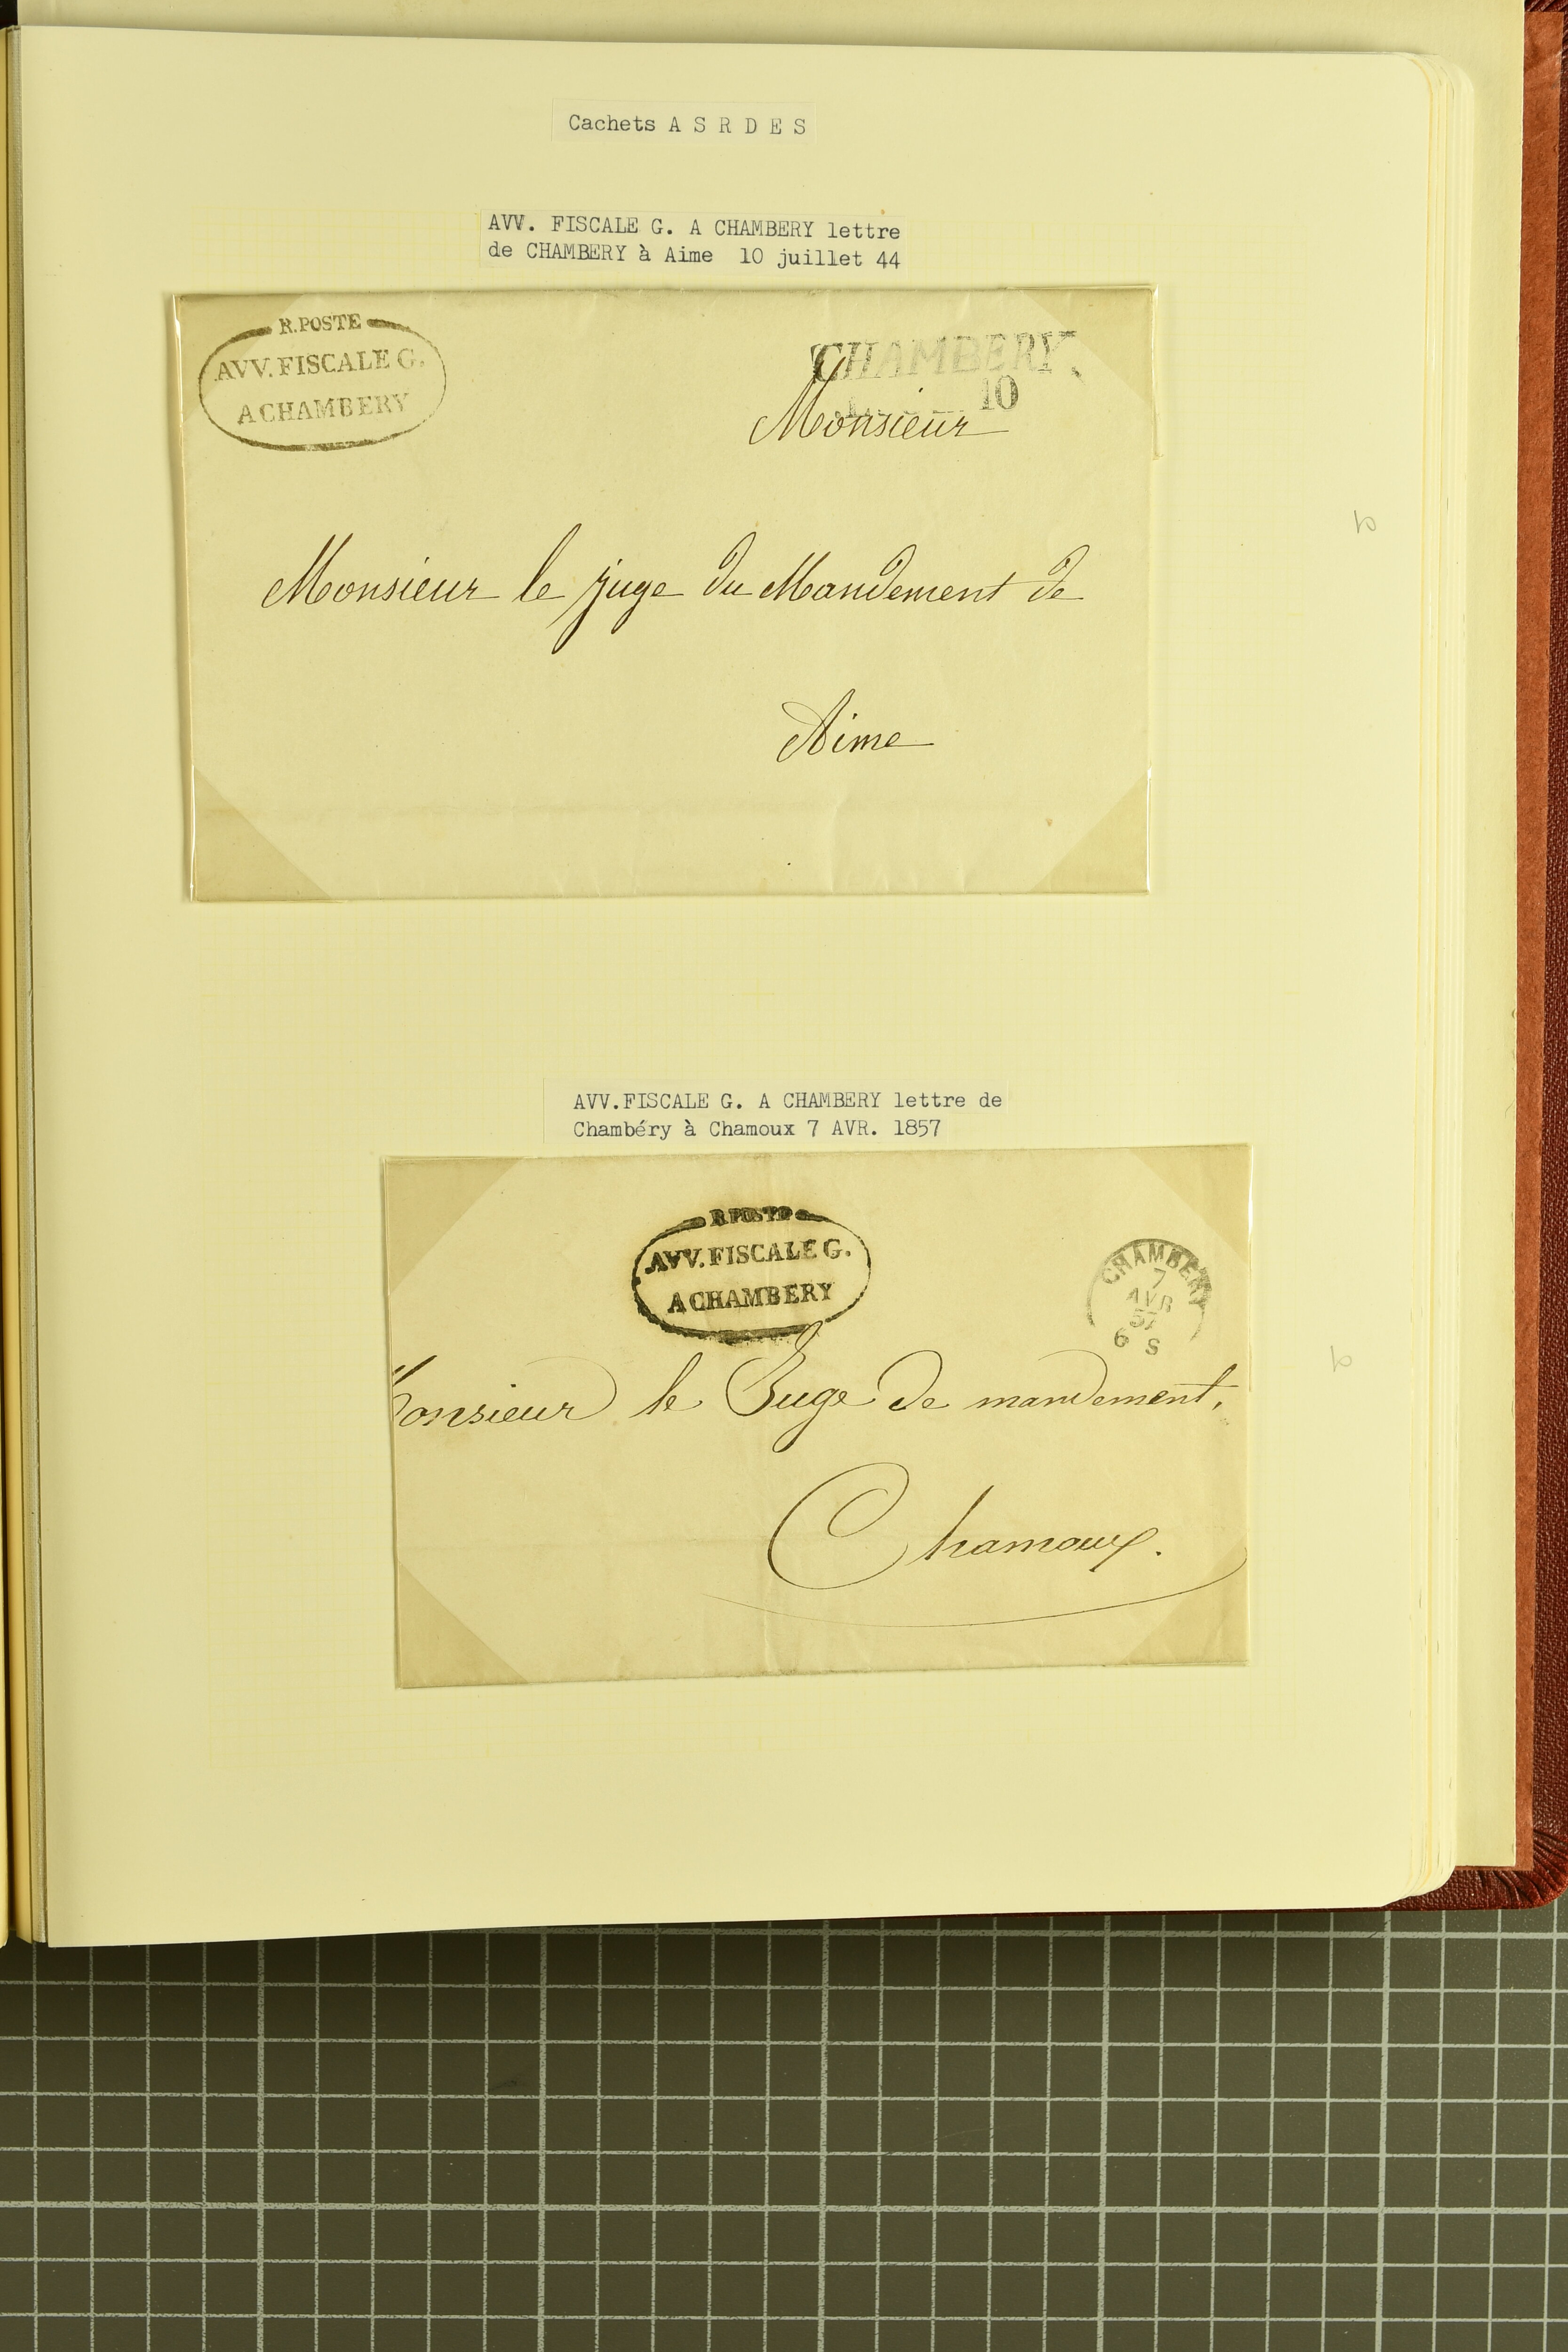 Cachets A S R D E S
AVV. FISCALE G. A CHAMBERY lettre
de CHAMBERY à Aime 10 juillet 44
R.POSTE
AVV. FISCALE G.
A CHAMBERY
CHAMBERY.
10
Monsieur
Monsieur le juge du Mandement de
Aime
AVV.FISCALE G. A CHAMBERY lettre de
Chambéry à Chamoux 7 AVR. 1857
R.POSTE
AVV. FISCALE G.
A CHAMBERY
CHAMBERY
7
AVR
57
6 S
Monsieur le Juge de mandement,
Chamoux.